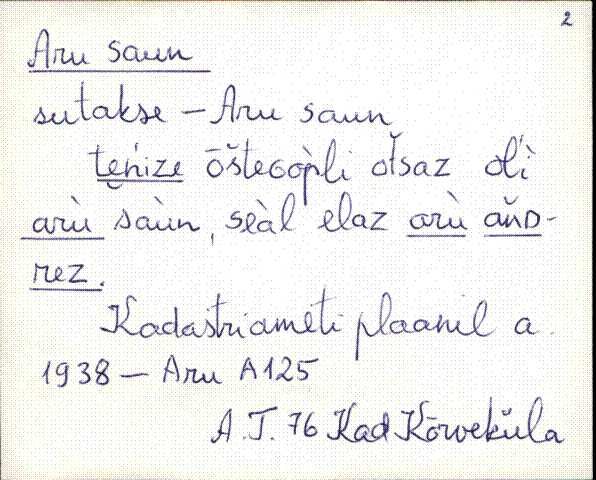 2
Aru saun
sutakse – Aru saun
teńize ōštegòpli ŏtsaz oĺì
arù saùn, seàl elaz arù ăńᴅ-
rez.
Kadastriameti plaanil a.
1938 – Aru A125
A.T. 76 Kad Kõrveküla